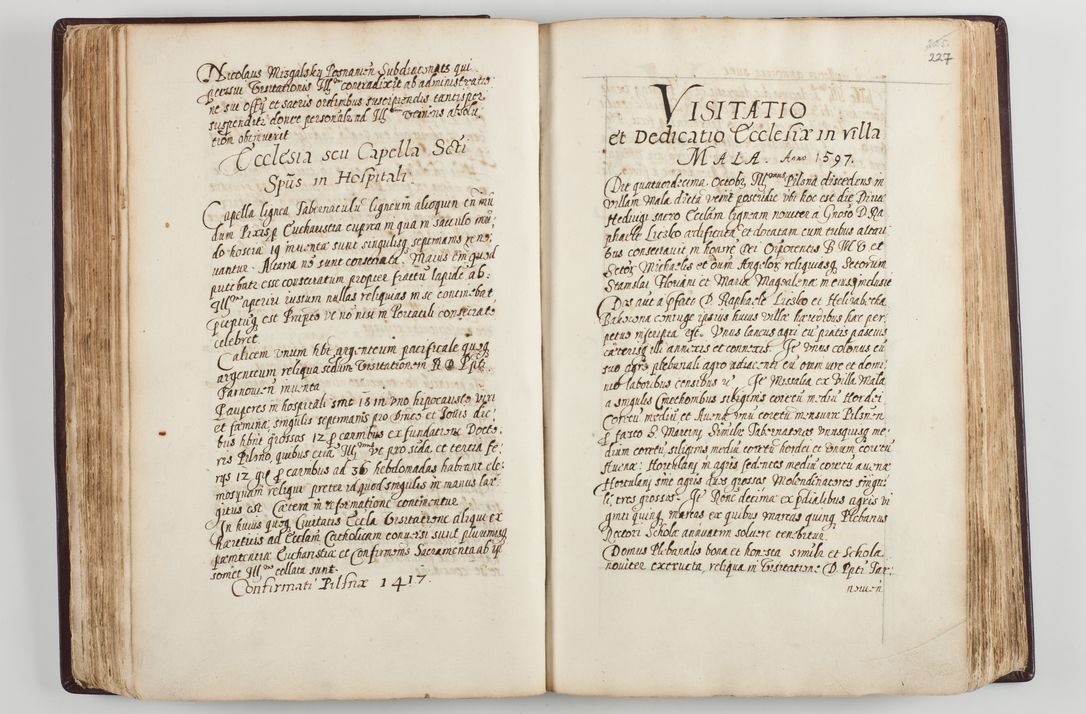 Nicolaus Mizgalsky Posnanien Subdiaconus qui
tempore Visitationis Ill^mus contradixit ab administratio
ne sui officij et sacris ordinibus suscipiendis tantisper
suspenditr donec personalr ad Ill^mum veniens absolu
tiom obtinuerit
Ecclesia seu Capella Scti
Spūs in Hospitali.
Capella lignea Tabernaculū ligneum alioquin cū mū
dum Pixis p Eucharistia cuprea in qua in saculo mū
do hostia 19 inuenta sunt singulisq septimanis reno
uantur. Altaria nō sunt consecrata. Maius em quod
putabatr esse consecratum propter fractū lapidē ab
Ill^mo aperiri iussum nullas reliquias in se continebat
est Prinpto ve nō nisi in Portatili consecrato
celebret
Calicem vnum hbt argenteum pacificale quoq
argenteum reliqua secundum Visitationem R D Ppti
Tarnouien inuenta
Pauperes in hospitali sunt 18 in vno hipocausto viri
et fæminæ, singulis septimanis pro Dnico et Iouis die
bus hbnt grossos 12 p carnibus ex fundatione Docto
ris Pilsno, quibus etiā Ill^mus ve pro 2da et tercia fe
rijs 12 gr p carnibus ad 36 hebdomadas habeant ele
mosynam reliqit preter id quod singulis in manus lar
gitus est. Cætera in reformatione continentur
In huius quoq Ciuitatis Eccla Visitatione aliqui ex
hæreticis ad Ecclām Catholicam conuersi sunt plurimisq
pænitentiæ Eucharistiæ et Confirmonis Sacramenta ab ip
somet Ill^mo collata sunt.
Confirmati Pilsnæ 1417.
205.
227
VISITATIO
et Dedicatio Ecclesiæ in villa
MALA. Anno 1597.
Die quatuordecima Octobr Ill^mus Pilsna discedens in
villam Mala dictā venit postridie vbi hoc est die Diuæ
Heduigi sacro Ecclām ligneam nouiter a Gnoso D Ra
phaele Liesko ædificatā et dotatam cum tribus altari
bus consecrauit in honorē Dei Oipotentis B M V et
Sctor Michaelis et oium Angelor reliquiasq Sctorum
Stanislai Floriani et Mariæ Magdalenæ in eis inclusit
Dos aut a pfato D Raphaele Liesko et Helizabetha
Bakoxona coniuge ipsius huius villæ hæredibus hæc per
petuo inscripta est. Vnus laneus agri cū pratis pascuis
cæterisq illi annexis et connexis. Itē vnus colonus cū
suo agro plebanali agro adiacenti cū omni iure et domi
nio laboribus censibus etc. Itē Missalia ex villa Mala
a singulis Cmethonibus siliginis coretū mediū Hordei
Coretū mediū et Auenæ vnū coretū mensuræ Pilsnen
p festo S. Martini. Similr Tabernatores vnusquisq me
dium coretū siliginis mediū coretū hordei et vnum coretū
Auenæ: Hortulani in agris sedentes mediū coretū auenæ
Hortulani sine agris duos grossos Molendinatores singu
li tres grossos. Itē Ronē decimæ ex pdialibus agris vi
ginti quinq marcas ex quibus marcas quinq Plebanus
Rectori Scholæ annuatim soluere tenebitur
Domus Plebanalis bona et honesta similr et Schola
nouiter exerecta, reliqua in Visitatione D. Ppti Tar:
nouien